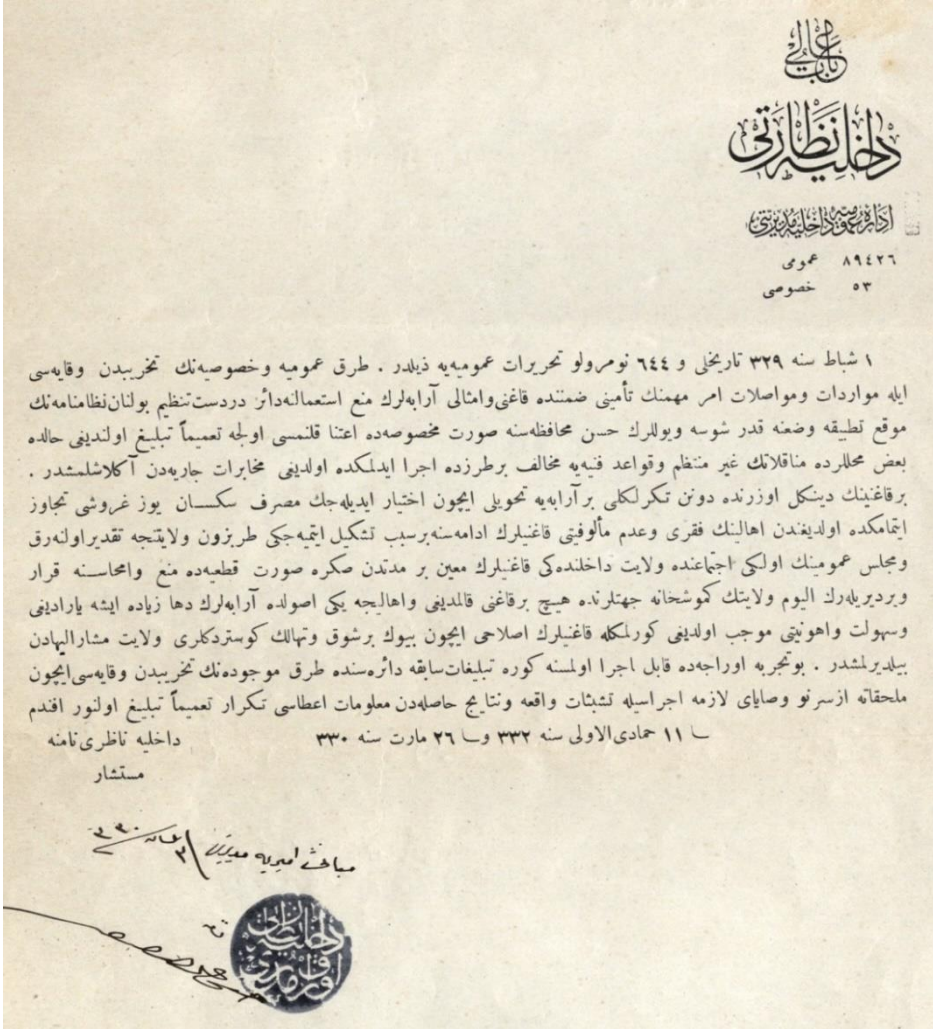 باب عالی
داخلیه نظارتی
اداره عمومیه داخلیه مدیریتی
٨٩٤٢٦ عمومی
٥٣ خصوصی
١ شباط سنه ٣٢٩ تاریخلی و ٦٤٤ نومرولو تحریرات عمومیه‌یه ذیلدر . طرق عمومیه وخصوصیه‌نك تخریبدن وقایه‌سی
ایله مواردات ومواصلات امر مهمنك تأمینی ضمننده قاغنی‌وامثالی آرابه‌لرك منع استعمالنه‌دائر دردست‌تنظیم بولنان‌نظامنامه‌نك
موقع تطبیقه وضعنه قدر شوسه ویوللرك حسن محافظه‌سنه صورت مخصوصه‌ده اعتنا قلنمسی اولجه تعمیماً تبلیغ اولندیغی حالده
بعض محللرده مناقلاتك غیر منتظم وقواعد فنیه‌یه مخالف برطرزده اجرا ایدلمكده اولدیغی مخابرات جاریه‌دن آكلاشلمشدر .
برقاغنینك دینكل اوزرنده دونن تكرلكلی برآرابه‌یه تحویلی ایچون اختیار ایدیله‌جك مصرف سكسان یوز غروشی تجاوز
ایتمامكده اولدیغندن اهالینك فقری وعدم مألوفیتی قاغنیلرك ادامه‌سنه‌برسبب تشكیل ایتمیه‌جكی طربزون ولایتنجه تقدیراولنه‌رق
ومجلس عمومینك اولكی اجتماعنده ولایت داخلنده‌كی قاغنیلرك معین بر مدتدن صكره صورت قطعیه‌ده منع وامحاسنه قرار
ویردیریله‌رك الیوم ولایتك كموشخانه جهتلرنده هیچ برقاغنی قالمدیغی واهالیجه یكی اصولده آرابه‌لرك دها زیاده ایشه یارادیغی
وسهولت واهونیتی موجب اولدیغی كورلمكله قاغنیلرك اصلاحی ایچون بیوك برشوق وتهالك كوستردكلری ولایت مشارالیهادن
بیلدیرلمشدر . بوتجربه اوراجه‌ده قابل اجرا اولمسنه كوره تبلیغات‌سابقه دائره‌سنده طرق موجوده‌نك تخریبدن وقایه‌سی‌ایچون
ملحقاته ازسرنو وصایای لازمه اجراسیله تشبثات واقعه ونتایج حاصله‌دن معلومات اعطاسی تكرار تعمیماً تبلیغ اولنور افندم
١١ جمادی‌الاولی سنه ٣٣٢ و ٢٦ مارت سنه ٣٣٠
داخلیه ناظری‌نامنه
مستشار
داخلیه نظارتی
اوراق مدیری